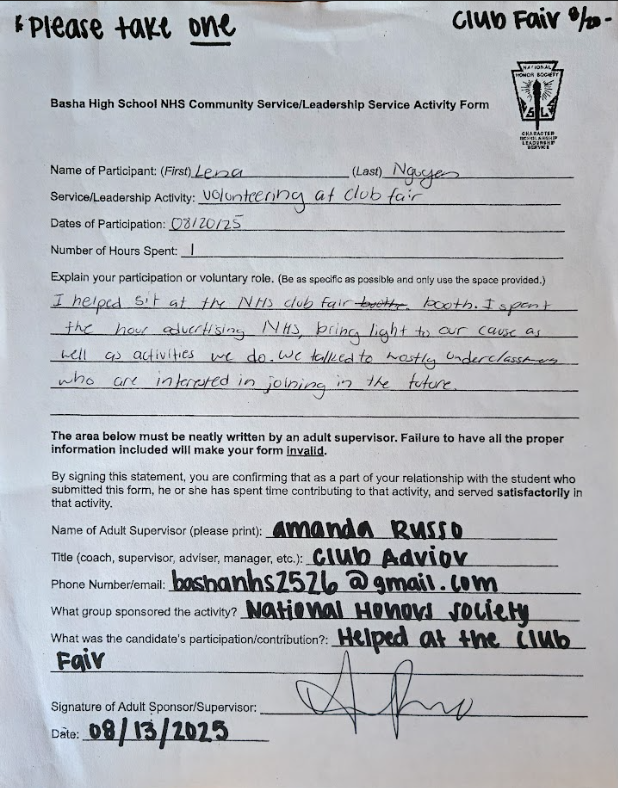 *Please take one
Club Fair 8/20-
NATIONAL
HONOR SOCIETY
CHARACTER
SCHOLARSHIP
LEADERSHIP
SERVICE
Basha High School NHS Community Service/Leadership Service Activity Form
Name of Participant: (First) Lena (Last) Nguyen
Service/Leadership Activity: Volunteering at club fair
Dates of Participation: 08/20/25
Number of Hours Spent: 1
Explain your participation or voluntary role. (Be as specific as possible and only use the space provided.)
I helped sit at the NHS club fair booth. booth. I spent
the hour advertising NHS, bring light to our cause as
well as activities we do. We talked to mostly underclassmen
who are interested in joining in the future.
The area below must be neatly written by an adult supervisor. Failure to have all the proper
information included will make your form invalid.
By signing this statement, you are confirming that as a part of your relationship with the student who
submitted this form, he or she has spent time contributing to that activity, and served satisfactorily in
that activity.
Name of Adult Supervisor (please print): Amanda Russo
Title (coach, supervisor, adviser, manager, etc.): Club Advior
Phone Number/email: bashanhs2526@gmail.com
What group sponsored the activity? National Honors Society
What was the candidate's participation/contribution?: Helped at the Club
Fair
Signature of Adult Sponsor/Supervisor:
Date: 08/13/2025